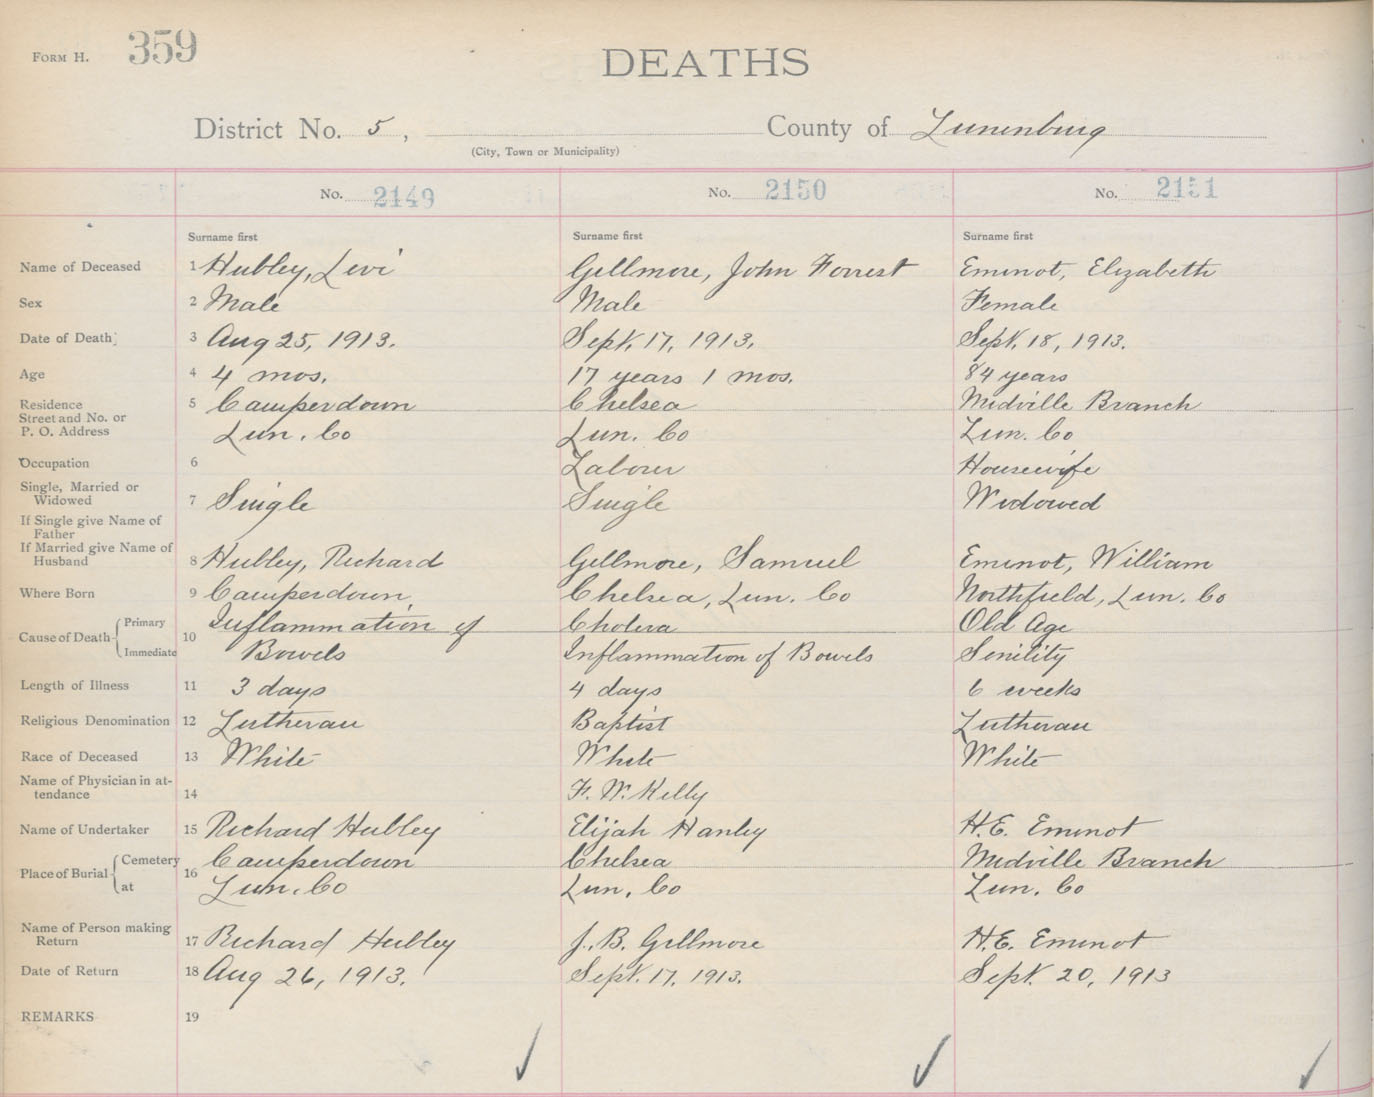 FORM H. 359
DEATHS
District No. 5, County of Lunenburg
(City, Town or Municipality)
No. 2149 No. 2150 No. 2151
Surname first Surname first Surname first
Name of Deceased 1 Hubley, Levi Gellmore, John Forrest Emenot, Elizabeth
Sex 2 Male Male Female
Date of Death 3 Aug 25, 1913. Sept. 17, 1913. Sept. 18, 1913.
Age 4 4 mos. 17 years 1 mos. 84 years
Residence 5 Camperdown Chelsea Midville Branch
Street and No. or
P. O. Address Lun. Co Lun. Co Lun. Co
Occupation 6 Labour Housewife
Single, Married or
Widowed 7 Single Single Widowed
If Single give Name of
Father
If Married give Name of
Husband 8 Hubley, Richard Gellmore, Samuel Emenot, William
Where Born 9 Camperdown Chelsea, Lun. Co Northfield, Lun. Co
Cause of Death Primary 10 Inflammation of Cholera Old Age
Immediate Bowels Inflammation of Bowels Senility
Length of Illness 11 3 days 4 days 6 weeks
Religious Denomination 12 Lutheran Baptist Lutheran
Race of Deceased 13 White White White
Name of Physician in at-
tendance 14 F. W. Kelly
Name of Undertaker 15 Richard Hubley Elijah Hanley H. E. Emenot
Place of Burial Cemetery 16 Camperdown Chelsea Midville Branch
at Lun. Co Lun. Co Lun. Co
Name of Person making
Return 17 Richard Hubley J. B. Gellmore H. E. Emenot
Date of Return 18 Aug 26, 1913. Sept. 17, 1913. Sept. 20, 1913
REMARKS 19